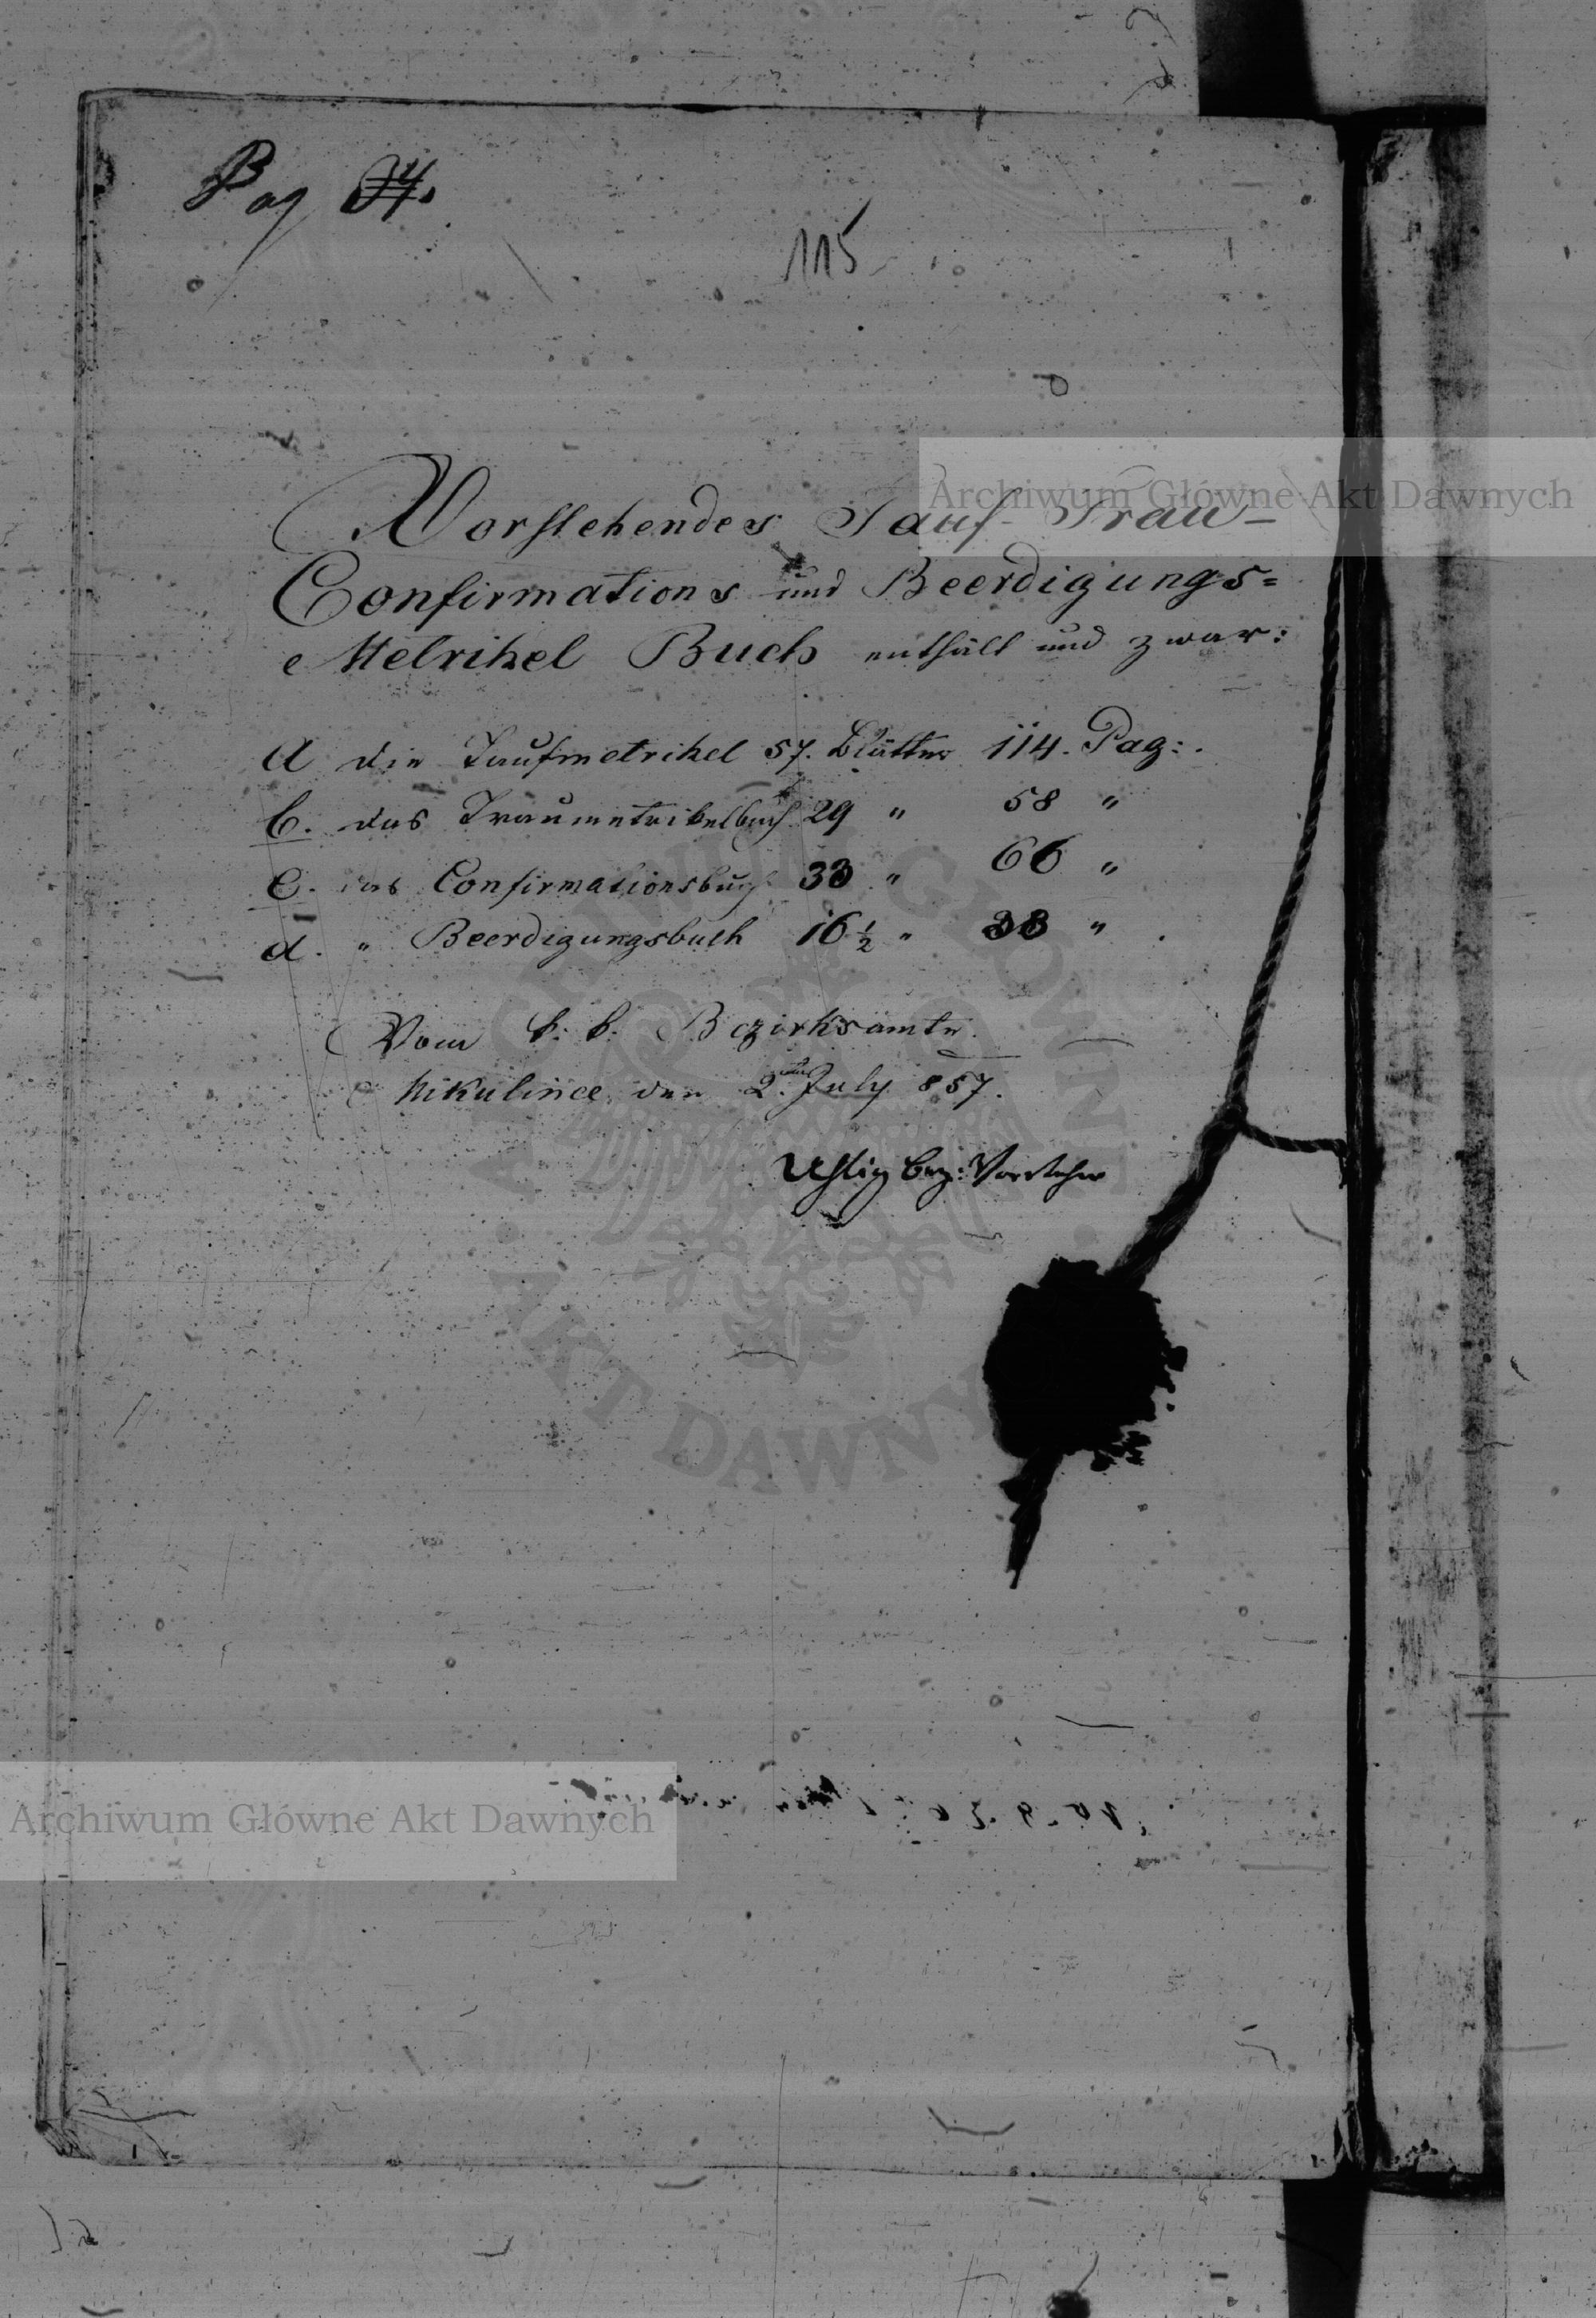 Pag
115
Archiwum Główne Akt Dawnych
Vorstehendes Tauf- Trau-
Confirmations und Beerdigungs=
Metrikel Buch enthält und zwar:
a die Taufmetrikel 57. Blätter 114. Pag:.
b. das Traumetrikelbuch 29 " 58 "
c. das Confirmationsbuch 33 " 66 "
d. " Beerdigungsbuch 16 1/2 " 33 " .
Vom k. k. Bezirksamte.
Mikulince den 2. July 857.
Bez: Vorsteher
Archiwum Główne Akt Dawnych
AKT DAWNY